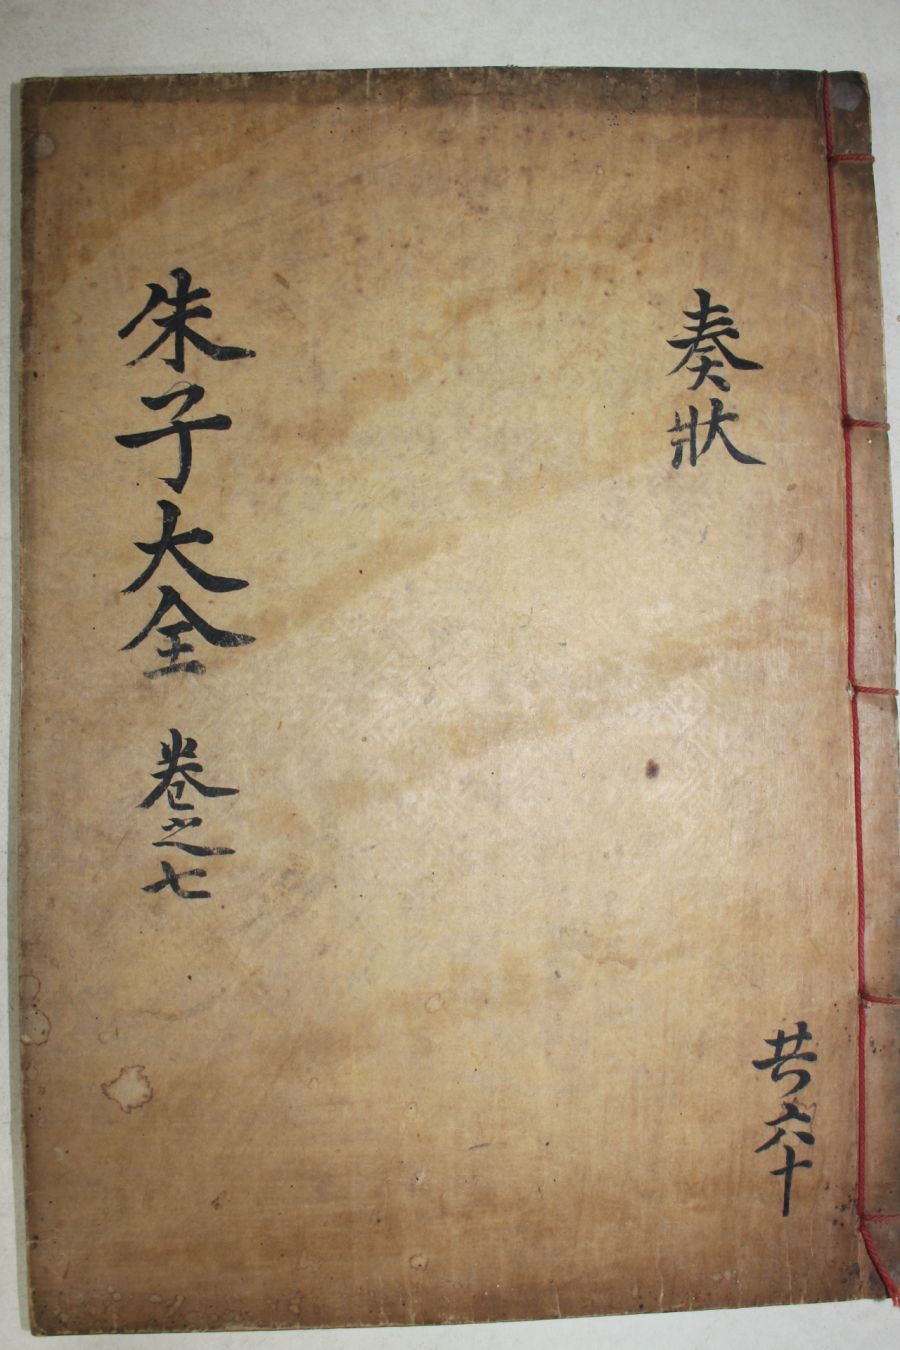 奏狀
共六十
朱子大全 卷之七